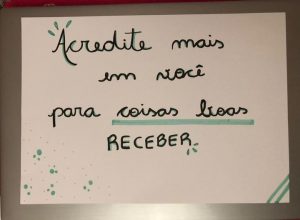 Acredite mais
em você
para coisas boas
RECEBER